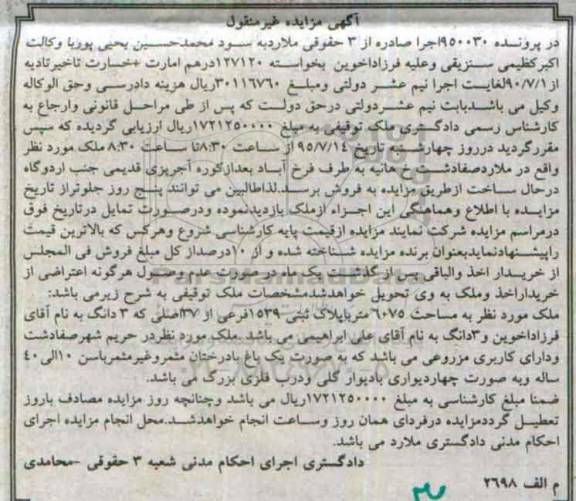 آگهی مزایده غیرمنقول
در پرونده ۹۵۰۰۳۰اجرا صادره از ۳ حقوقی ملاردبه سود محمدحسین یحیی پوربا وکالت
اکبرکظیمی سنزیقی وعلیه فرزاداخوین بخواسته ۱۲۷۱۲۰درهم امارت +خسارت تاخیرتادیه
از۹۰/۷/۱لغایت اجرا نیم عشر دولتی ومبلغ ۳۰۱۱۶۷۶۰ریال هزینه دادرسی وحق الوکاله
وکیل می باشدبابت نیم عشردولتی درحق دولت که پس از طی مراحل قانونی وارجاع به
کارشناس رسمی دادگستری ملک توقیفی به مبلغ ۱۷۲۱۲۵۰۰۰۰ریال ارزیابی گردیده که سپس
مقررگردید درروز چهارشنبه تاریخ ۹۵/۷/۱۴از ساعت ۸:۳۰تا ساعت ۸:۳۰ ملک مورد نظر
واقع در ملاردصفادشت هانیه به طرف فرخ آباد بعدازکوره آجرپزی قدیمی جنب اردوگاه
درحال ساخت ازطریق مزایده به فروش برسد.لذاطالبین می توانند پنج روز جلوتراز تاریخ
مزایده با اطلاع وهماهنگی این اجراء ازملک بازدیدنموده ودرصورت تمایل درتاریخ فوق
درمراسم مزایده شرکت نمایند مزایده ازقیمت پایه کارشناسی شروع وهرکس که بالاترین قیمت
راپیشنهادنمایدبعنوان برنده مزایده شناخته شده و از ۱۰درصداز کل مبلغ فروش فی المجلس
از خریدار اخذ والباقی پس از گذشت یک ماه در صورت عدم وصول هرگونه اعتراضی از
خریداراخذ وملک به وی تحویل خواهدشدمشخصات ملک توقیفی به شرح زیرمی باشد:
ملک مورد نظر به مساحت ۶۰۷۵ متربابلاک ثبتی ۱۵۳۹فرعی از ۳۷اصلی که ۳ دانگ به نام آقای
فرزاداخوین و۳دانگ به نام آقای علی ابراهیمی می باشد .ملک مورد نظردر حریم شهرصفادشت
ودارای کاربری مزروعی می باشد که به صورت یک باغ بادرختان مثمروغیرمثمرباسن ۱۰الی۴۰
ساله وبه صورت چهاردیواری بادیوار گلی ودرب فلزی بزرگ می باشد.
ضمنا مبلغ کارشناسی به مبلغ ۱۷۲۱۲۵۰۰۰۰ریال می باشد وچنانچه روز مزایده مصادف باروز
تعطیل گرددمزایده درفردای همان روز وساعت انجام خواهدشد.محل انجام مزایده اجرای
احکام مدنی دادگستری ملارد می باشد.
دادگستری اجرای احکام مدنی شعبه ۳ حقوقی -محامدی
م الف ۲۶۹۸